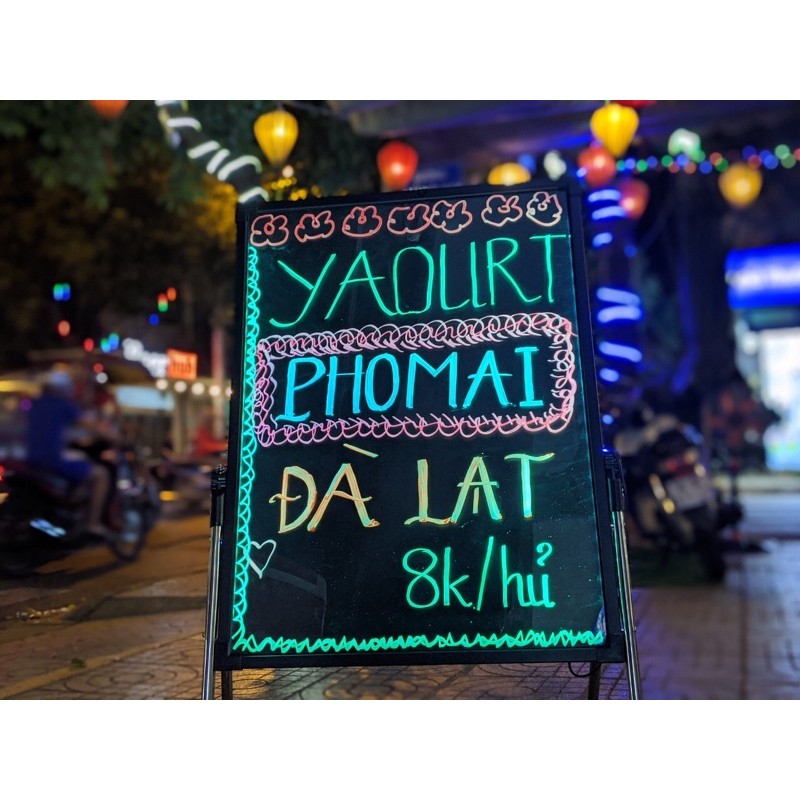 YAOURT
PHOMAI
ĐÀ LAT
8k/hủ